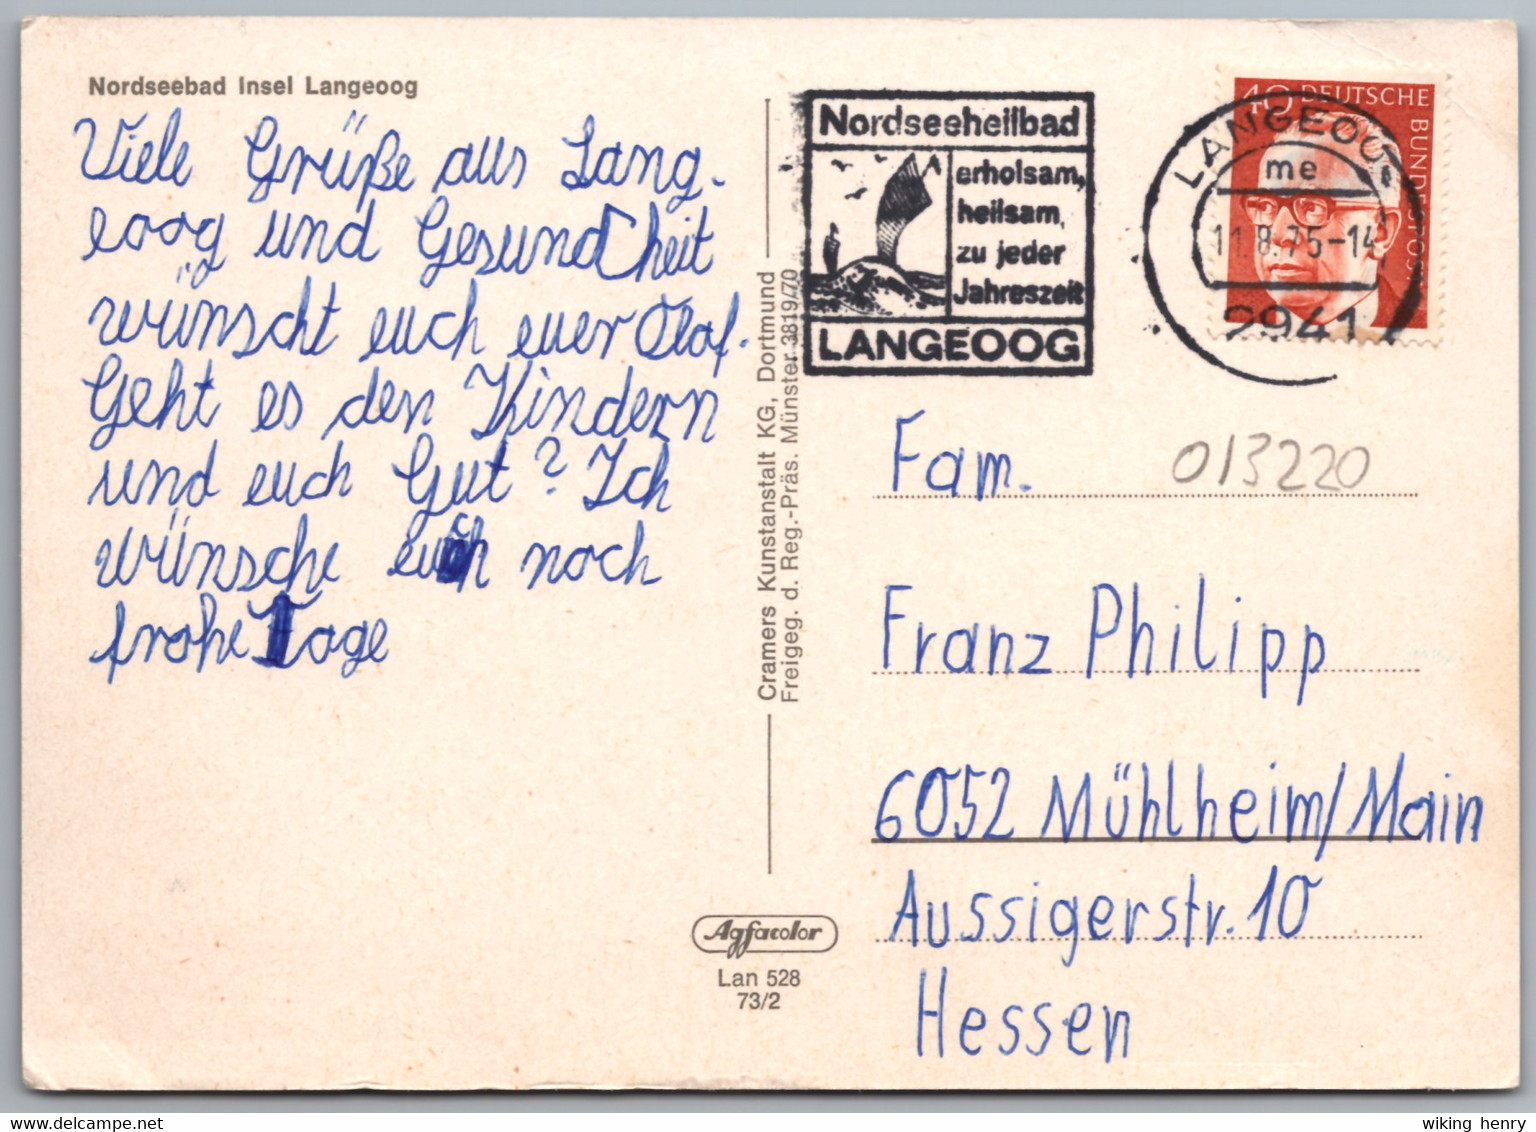 Nordseebad Insel Langeoog
Viele Grüße aus Lang-
eoog und Gesundheit
wünscht euch euer Olaf.
Geht es den Kindern
und euch Gut? Ich
wünsche euch noch
frohe Tage
Cramers Kunstanstalt KG, Dortmund
Freigeg. d. Reg.-Präs. Münster 3819/70
Agfacolor
Lan 528
73/2
Nordseeheilbad
erholsam,
heilsam,
zu jeder
Jahreszeit
LANGEOOG
LANGEOOG
me
11.8.75-14
2941
40 DEUTSCHE
BUNDESPOST
Fam.
013220
Franz Philipp
6052 Mühlheim/Main
Aussigerstr. 10
Hessen
wiking henry
delcampe.net